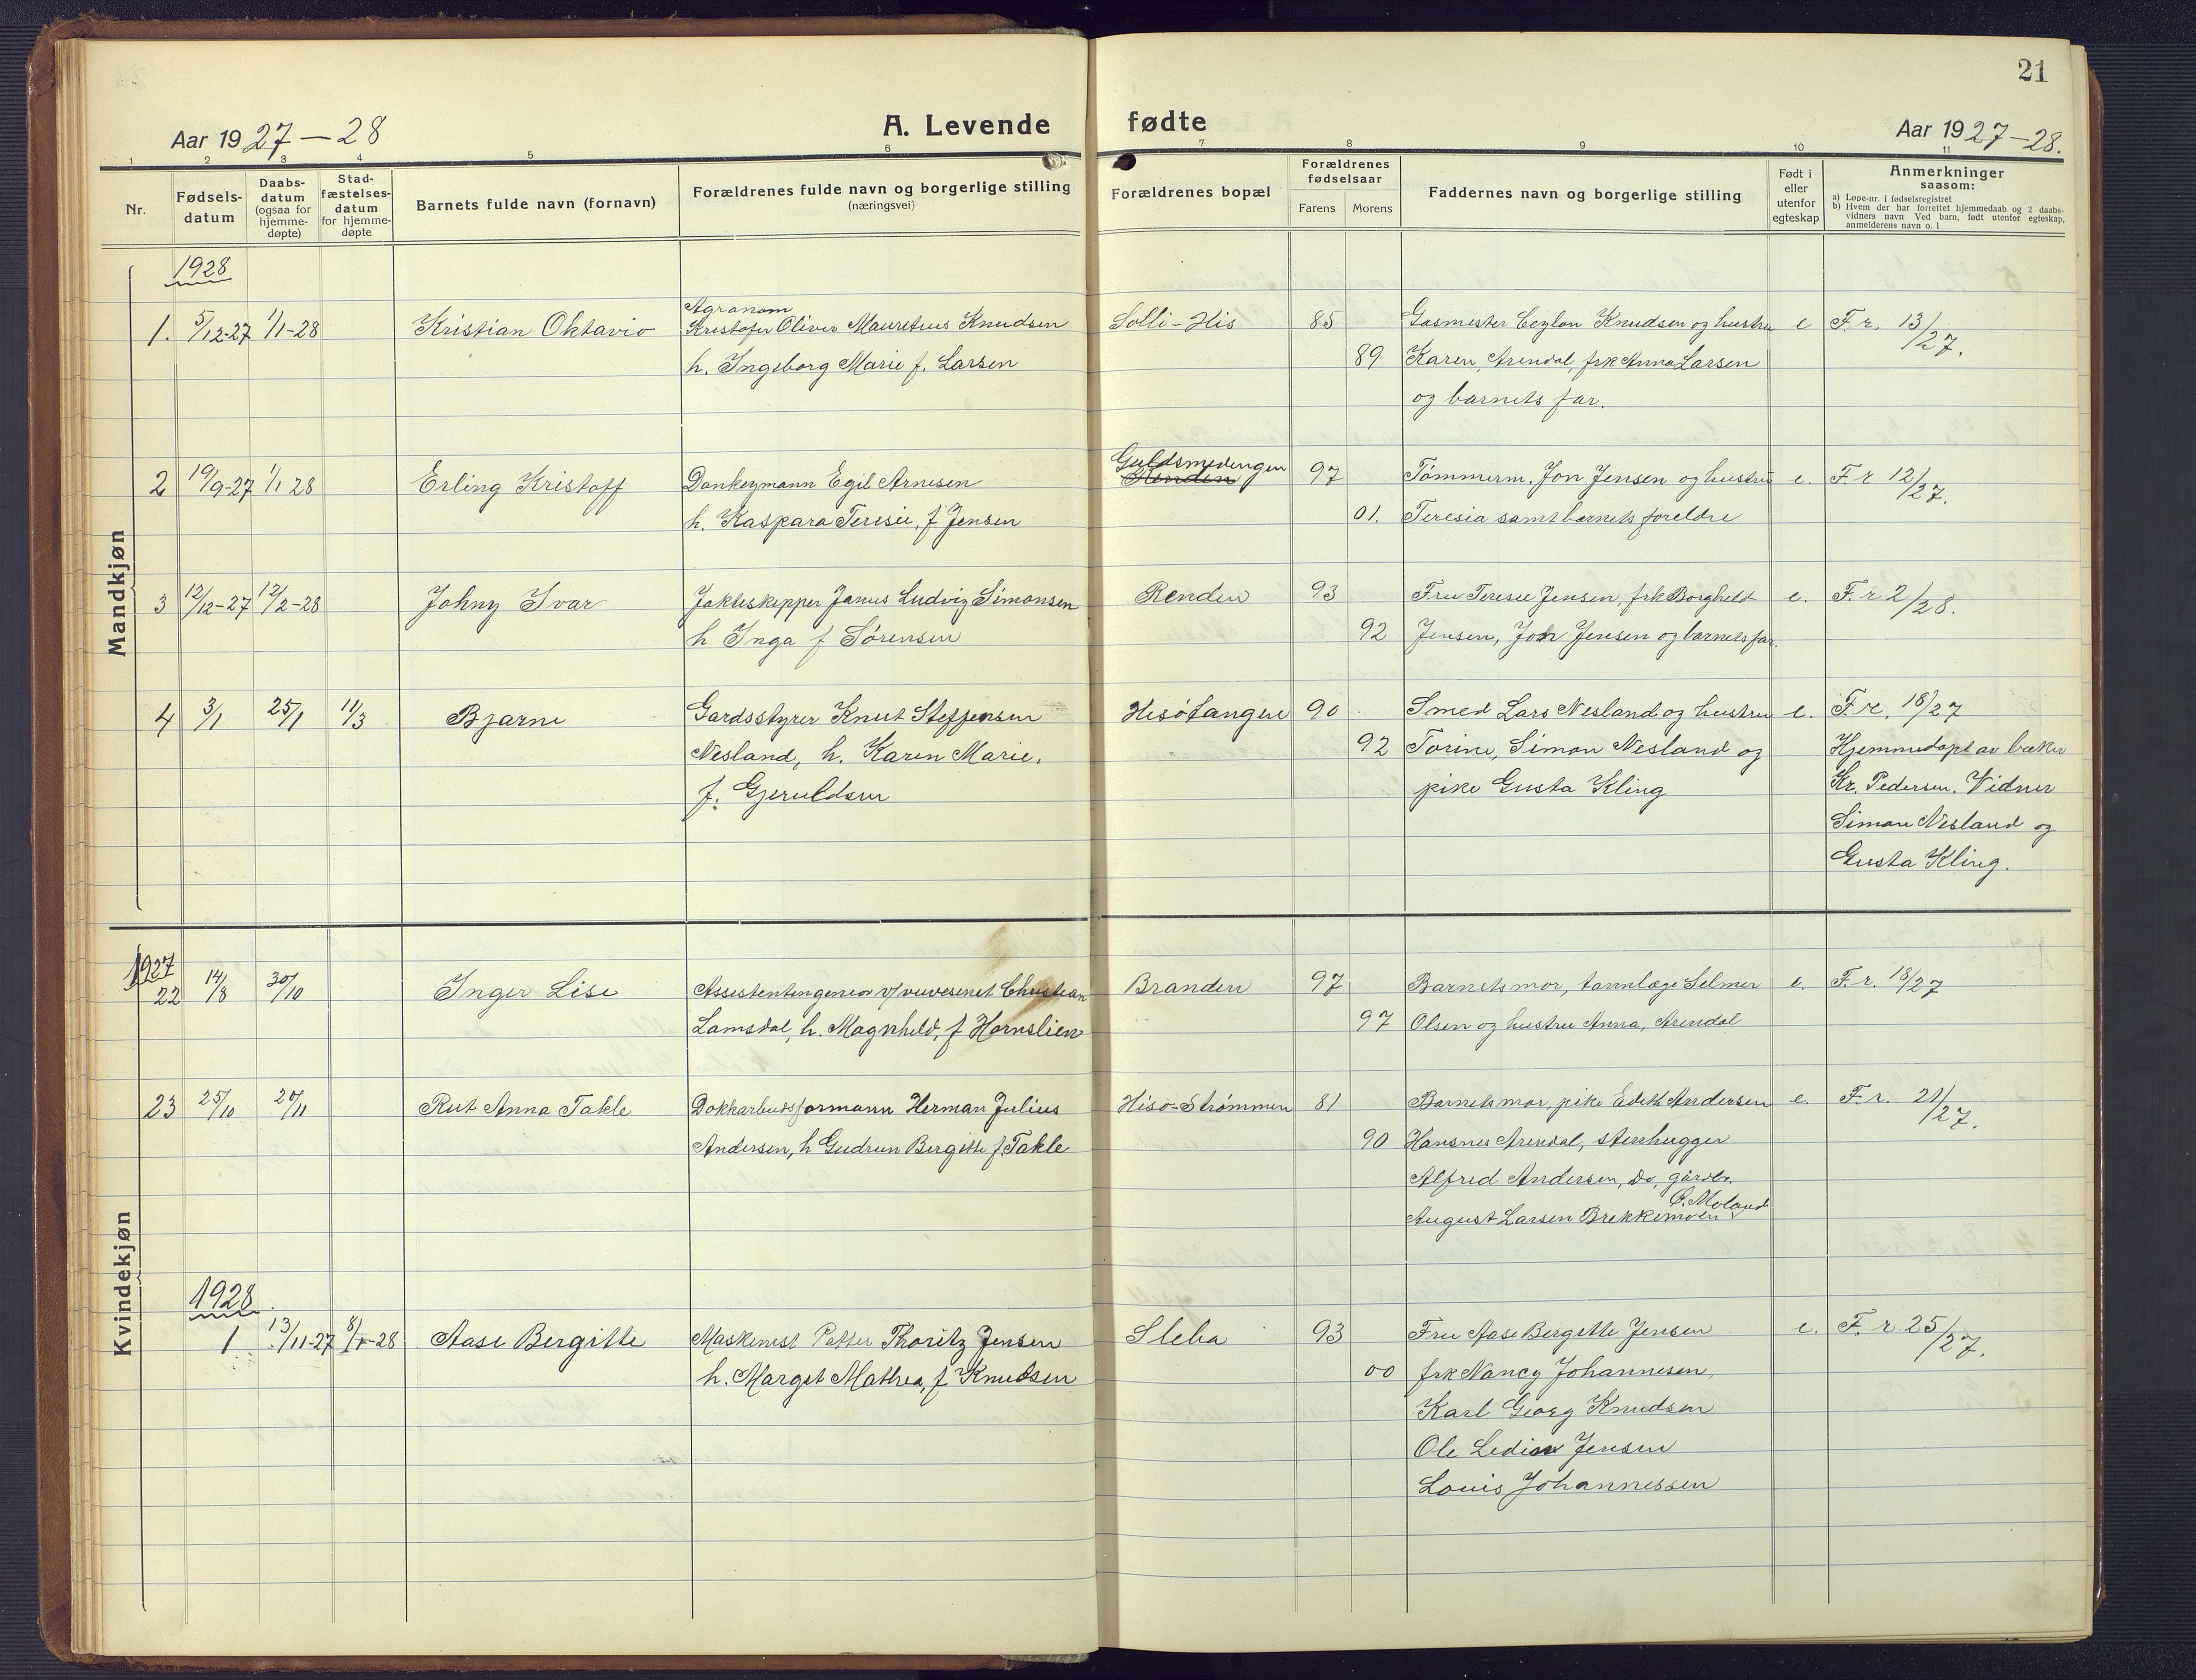 21
Aar 1927-28
A. Levende fødte
Aar 1927-28.
1 2 3 4 5 6 7 8 9 10 11
Nr.
Fødsels-
datum
Daabs-
datum
(ogsaa for
hjemme-
døpte)
Stad-
fæstelses-
datum
for hjemme-
døpte
Barnets fulde navn (fornavn)
Forældrenes fulde navn og borgerlige stilling
(næringsvei)
Forældrenes bopæl
Forældrenes
fødselsaar
Farens Morens
Faddernes navn og borgerlige stilling
Født i
eller
utenfor
egteskap
Anmerkninger
saasom:
a) Løpe-nr. i fødselsregistret
b) Hvem der har forrettet hjemmedaab og 2 daabs-
vidners navn Ved barn, født utenfor egteskap,
anmelderens navn o. l
Mandkjøn
1928
Agronom
1. 5/12-27 1/1-28 Kristian Oktavio Kristofer Oliver Mauretius Knudsen Solli-His 85 Gasmester Ceylon Knudsen og hustru e F. r. 13/27.
h. Ingeborg Marie f. Larsen 89 Karen, Arendal, frk Anna Larsen
og barnets far.
Guldsmedengen
2 19/9-27 1/1 28 Erling Kristoff Donkeymann Egil Arnesen Renden 97 Tømmerm. Jon Jensen og hustru e. F r 12/27.
h. Kaspara Teresie, f Jensen 01. Teresia samt barnets foreldre
3 12/12-27 12/2-28 Johny Ivar Jakteskipper Janus Ludvig Simonsen Renden 93 Fru Teresie Jensen, frk Borghild e. F. r 2/28.
h Inga f Sørensen 92 Jensen, Jon Jensen og barnets far.
4 3/1 25/1 11/3 Bjarne Gardsstyrer Knut Steffensen Hisøtangen 90 Smed Lars Nesland og hustru e. F. r. 18/27
Nesland, h. Karen Marie, 92 Torine, Simon Nesland og Hjemmedøpt av bæker
f. Gjeruldsen pike Gusta Kling Kr. Pedersen. Vidner
Simon Nesland og
Gusta Kling.
Kvindekjøn
1927
22 14/8 30/10 Inger Lise Assistentingeniør v/veivesenet Christian Branden 97 Barnets mor, tannlæge Selmer e. F. r. 18/27
Lamsdal, h. Magnhild, f Hornslien 97 Olsen og hustru Anna, Arendal
23 25/10 20/11 Rut Anna Takle Dokkarbeidsformann Herman Julius Hisø-Strømmen 81 Barnets mor, pike Edith Andersen e. F. r. 21/27.
Andersen, h Gudrun Bergitte f. Takle 90 Hansnes Arendal, stenhugger
Alfred Andersen, do, gårdbr.
Ø. Moland
August Larsen Brekkemoen
1928.
1 13/11-27 8/1-28 Aase Bergitte Maskinist Petter Thoritz Jensen Sleba 93 Fru Aase Bergitte Jensen e. F. r 25/27.
h. Margit Mathea, f Knudsen 00 frk Nancy Johannesen,
Karl Georg Knudsen
Ole Jensen
Louis Johannessen